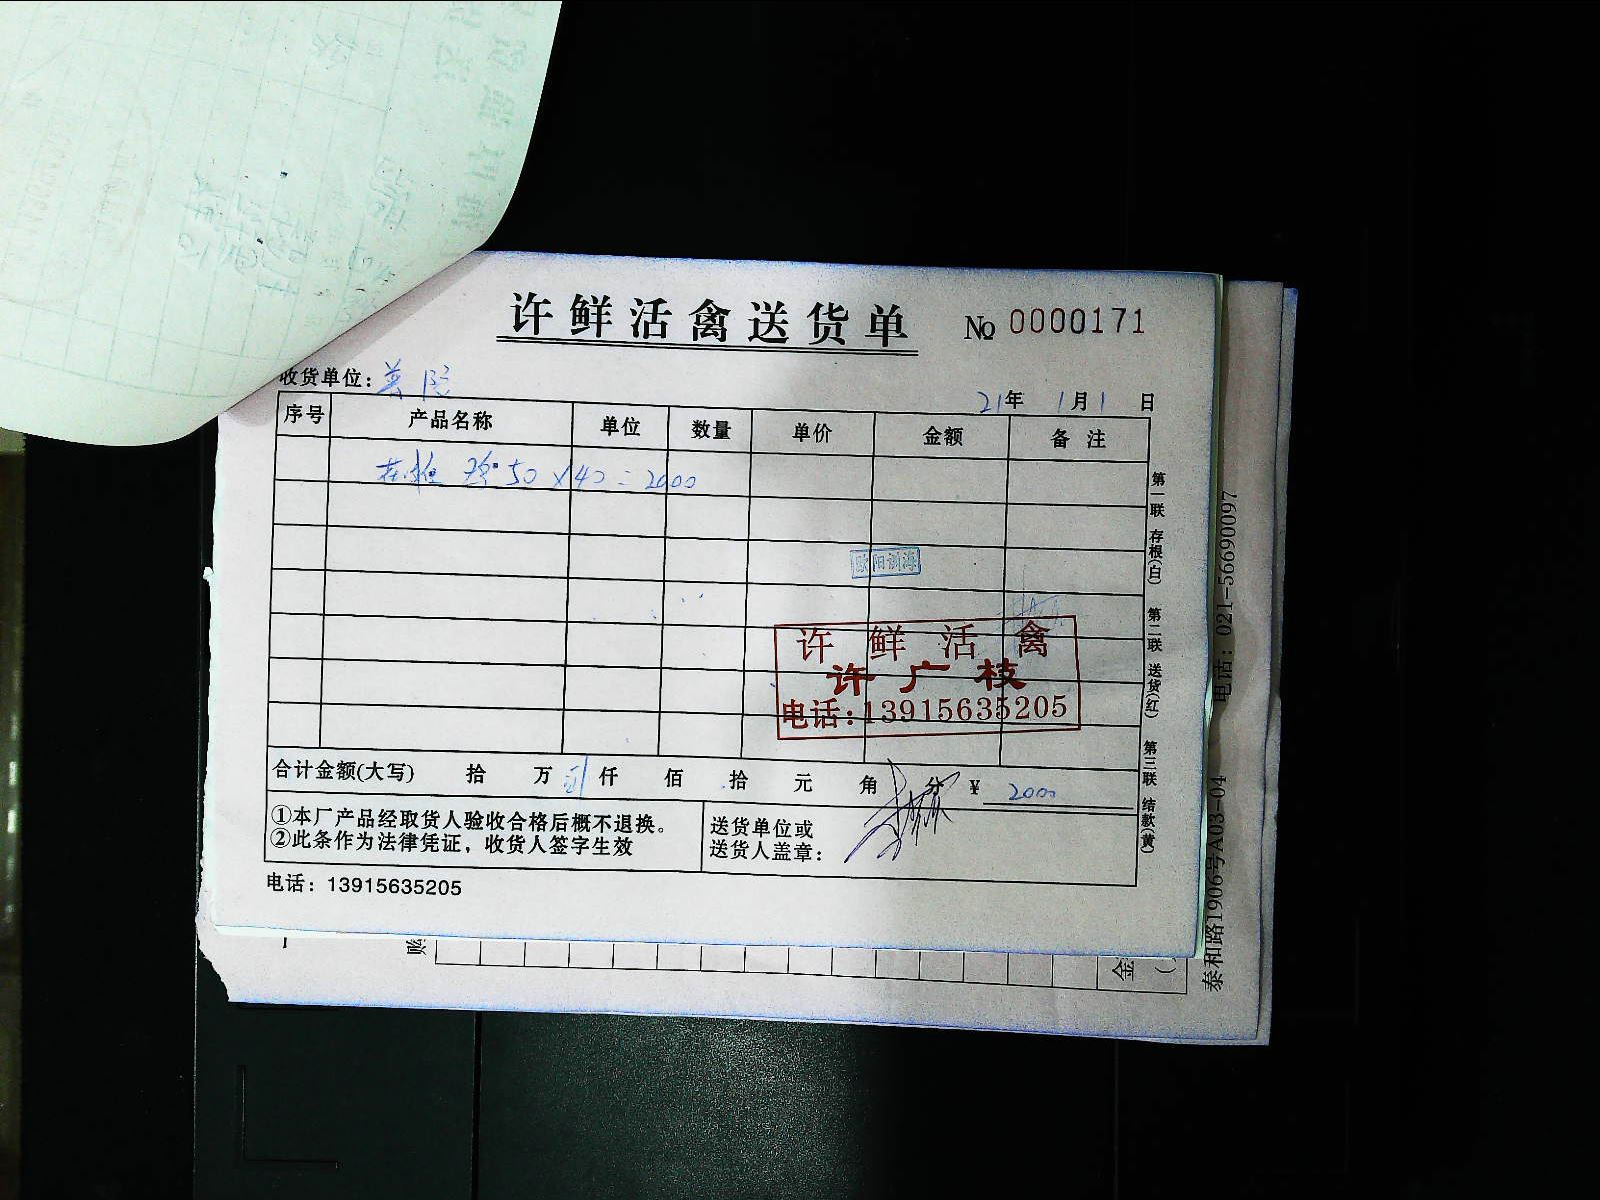 许鲜活禽送货单 No 0000171
收货单位：
21年 1月1日
序号 产品名称 单位 数量 单价 金额 备注
50×40=2000
许鲜活禽
许广枝
电话:13915635205
合计金额(大写) 拾 万 仟 佰 拾 元 角 分 ¥ 2000
①本厂产品经取货人验收合格后概不退换。
②此条作为法律凭证，收货人签字生效
送货单位或
送货人盖章：
电话：13915635205
第一联 存根(白) 第二联 送货(红) 第三联 结款(黄)
泰和路1906号A03-04 电话：021-56690097